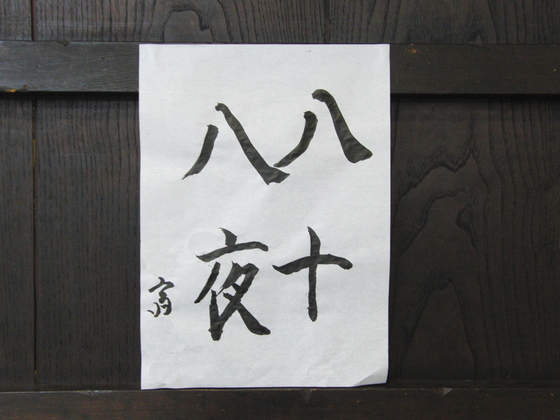 八十
八夜